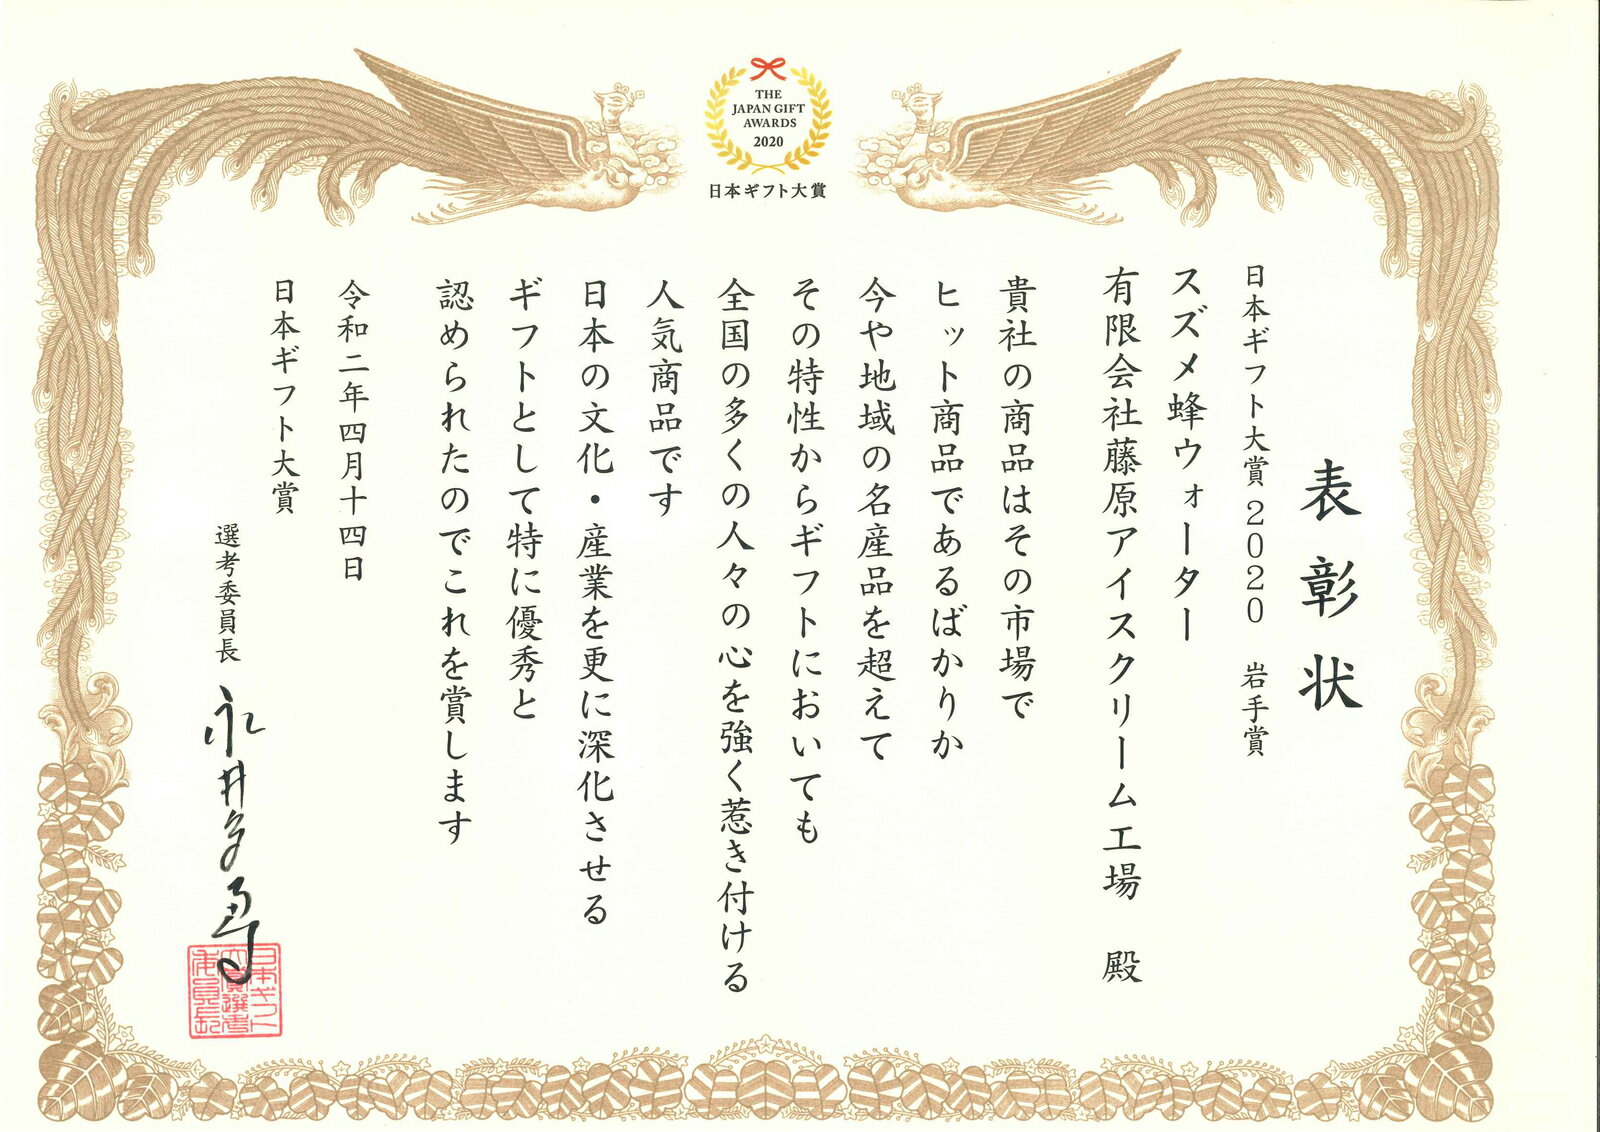 THE
JAPAN GIFT
AWARDS
2020
日本ギフト大賞
表彰状
日本ギフト大賞2020 岩手賞
スズメ蜂ウォーター
有限会社藤原アイスクリーム工場 殿
貴社の商品はその市場で
ヒット商品であるばかりか
今や地域の名産品を超えて
その特性からギフトにおいても
全国の多くの人々の心を強く惹き付ける
人気商品です
日本の文化・産業を更に深化させる
ギフトとして特に優秀と
認められたのでこれを賞します
令和二年四月十四日
日本ギフト大賞
選考委員長
日本ギフト
大賞選考
委員長